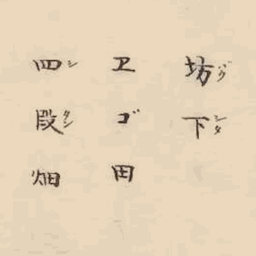 坊下 バウシタ
ヱゴ田
四段畑 シタン